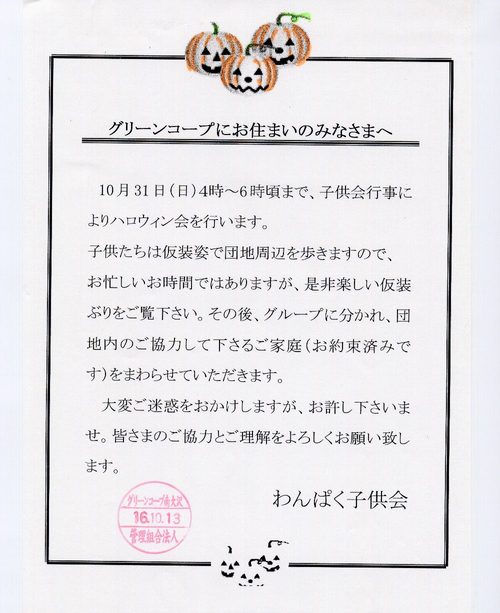 グリーンコープにお住まいのみなさまへ
10月31日(日)4時～6時頃まで、子供会行事に
よりハロウィン会を行います。
子供たちは仮装姿で団地周辺を歩きますので、
お忙しいお時間ではありますが、是非楽しい仮装
ぶりをご覧下さい。その後、グループに分かれ、団
地内のご協力して下さるご家庭(お約束済みで
す)をまわらせていただきます。
大変ご迷惑をおかけしますが、お許し下さいま
せ。皆さまのご協力とご理解をよろしくお願い致し
ます。
わんぱく子供会
グリーンコープ南大沢
16.10.13
管理組合法人